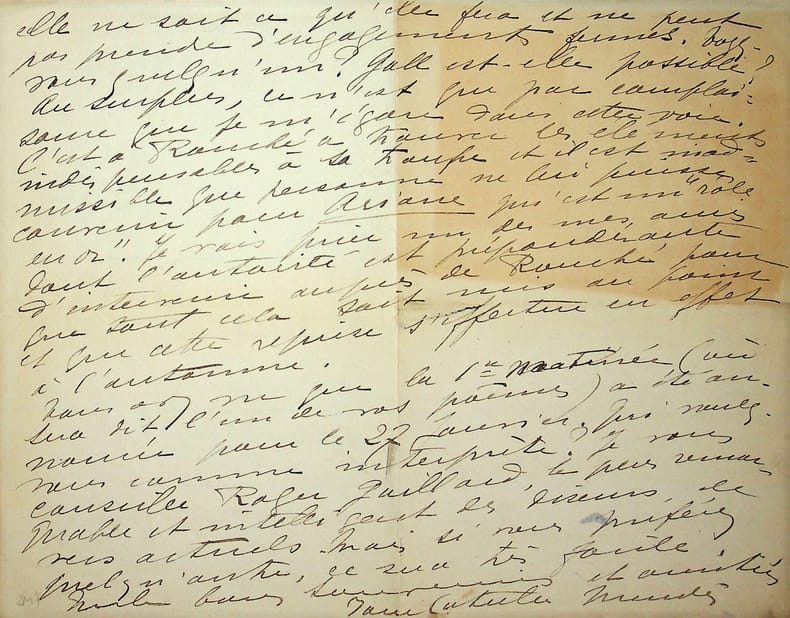 elle ne sait ce qu'elle fera et ne peut
pas prendre d'engagements fermes. Voyez-
vous quelqu'un? Gall est-elle possible?
Au surplus, ce n'est que par complai-
sance que je m'égare dans cette voie.
C'est à Rouché à trouver les éléments
indispensables à sa troupe et il est inad-
missible que personne ne lui puisse
convenir pour Ariane qui est un "rôle
en or". Je vais prier un des mes amis
dont l'autorité est prépondérante
d'intervenir auprès de Rouché pour
que tout cela soit mis au point
et que cette reprise s'effectue en effet
à l'automne.
que la 1re matinée (où
sera dit l'un de vos poèmes) a été an-
noncée pour le 27 janvier. Qui voulez-
vous comme interprète? Je vous
conseille Roger Gaillard, le plus remar-
quable et intelligent des diseurs de
vers actuels. Mais si vous préférez
quelqu'autre, ce sera très facile.
Mille bons souvenirs et amitiés
Jane Catulle Mendès